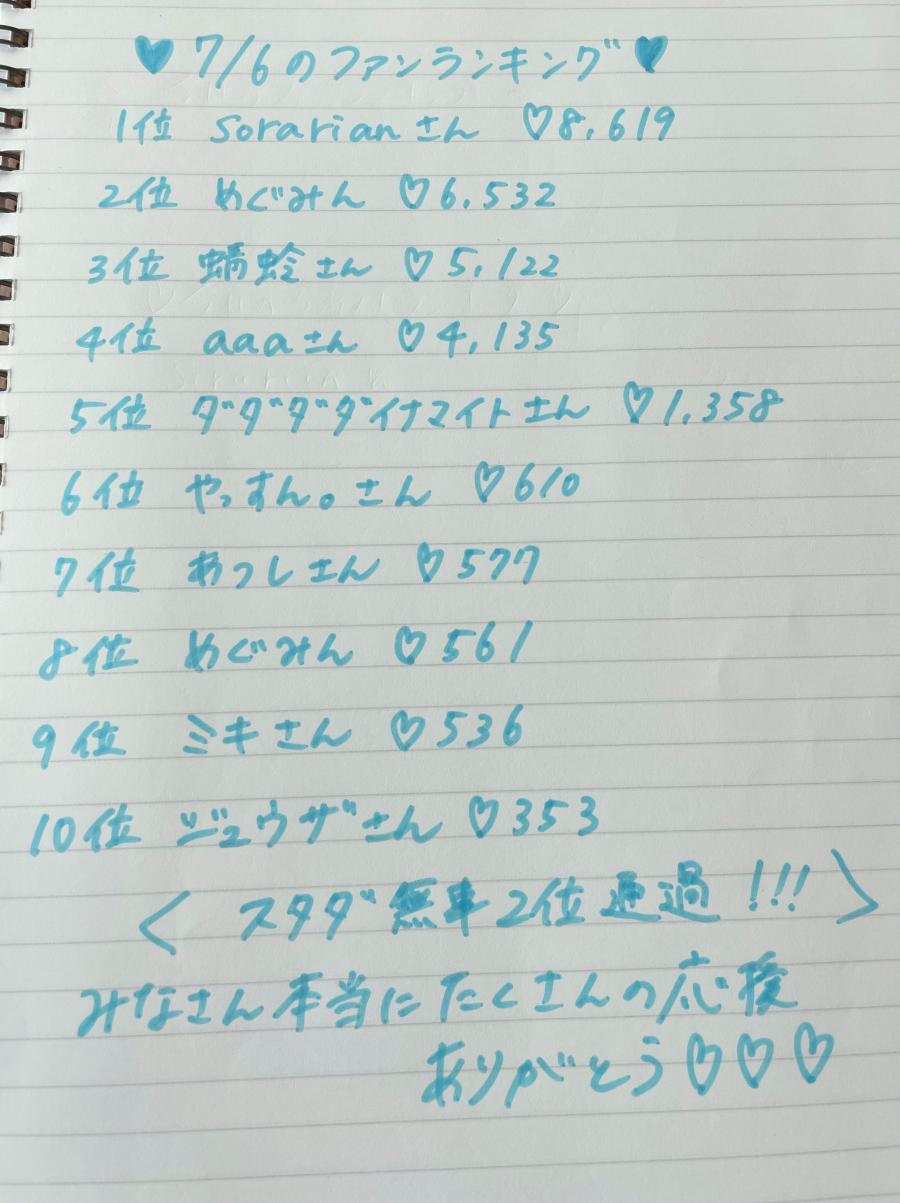 ♥7/6のファンランキング♥
1位 sorarianさん ♡8,619
2位 めぐみん ♡6,532
3位 蜻蛉さん ♡5,122
4位 aaaさん ♡4,135
5位 ダダダダイナマイトさん ♡1,358
6位 やっすん。さん ♡610
7位 あつしさん ♡577
8位 めぐみん ♡561
9位 ミキさん ♡536
10位 ジュウザさん ♡353
〈 スタダ無車2位通過!!! 〉
みなさん本当にたくさんの応援
ありがとう♡♡♡